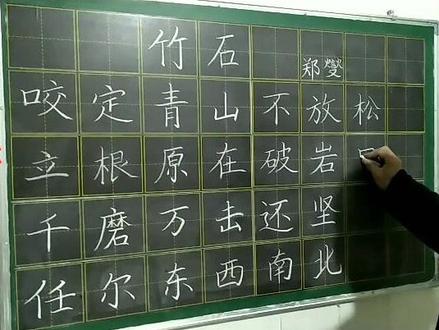 竹石
郑燮
咬定青山不放松
立根原在破岩
千磨万击还坚
任尔东西南北